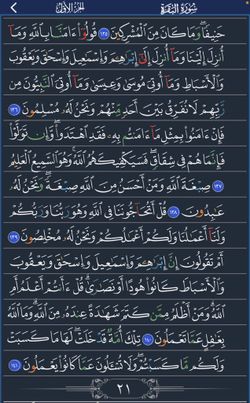 سُورَةُ البَقَرَةِ الجُزْءُ الأَوَّلُ
حَنِيفًا وَمَا كَانَ مِنَ الْمُشْرِكِينَ ١٣٥ قُولُوا آمَنَّا بِاللَّهِ وَمَا
أُنزِلَ إِلَيْنَا وَمَا أُنزِلَ إِلَى إِبْرَاهِيمَ وَإِسْمَاعِيلَ وَإِسْحَاقَ وَيَعْقُوبَ
وَالْأَسْبَاطِ وَمَا أُوتِيَ مُوسَى وَعِيسَى وَمَا أُوتِيَ النَّبِيُّونَ مِن
رَّبِّهِمْ لَا نُفَرِّقُ بَيْنَ أَحَدٍ مِّنْهُمْ وَنَحْنُ لَهُ مُسْلِمُونَ ١٣٦
فَإِنْ آمَنُوا بِمِثْلِ مَا آمَنتُم بِهِ فَقَدِ اهْتَدَوا وَّإِن تَوَلَّوْا
فَإِنَّمَا هُمْ فِي شِقَاقٍ فَسَيَكْفِيكَهُمُ اللَّهُ وَهُوَ السَّمِيعُ الْعَلِيمُ
١٣٧ صِبْغَةَ اللَّهِ وَمَنْ أَحْسَنُ مِنَ اللَّهِ صِبْغَةً وَنَحْنُ لَهُ
عَابِدُونَ ١٣٨ قُلْ أَتُحَاجُّونَنَا فِي اللَّهِ وَهُوَ رَبُّنَا وَرَبُّكُمْ
وَلَنَا أَعْمَالُنَا وَلَكُمْ أَعْمَالُكُمْ وَنَحْنُ لَهُ مُخْلِصُونَ ١٣٩
أَمْ تَقُولُونَ إِنَّ إِبْرَاهِيمَ وَإِسْمَاعِيلَ وَإِسْحَاقَ وَيَعْقُوبَ
وَالْأَسْبَاطَ كَانُوا هُودًا أَوْ نَصَارَى قُلْ أَأَنتُمْ أَعْلَمُ أَمِ
اللَّهُ وَمَنْ أَظْلَمُ مِمَّن كَتَمَ شَهَادَةً عِندَهُ مِنَ اللَّهِ وَمَا اللَّهُ
بِغَافِلٍ عَمَّا تَعْمَلُونَ ١٤٠ تِلْكَ أُمَّةٌ قَدْ خَلَتْ لَهَا مَا كَسَبَتْ
وَلَكُم مَّا كَسَبْتُمْ وَلَا تُسْأَلُونَ عَمَّا كَانُوا يَعْمَلُونَ ١٤١
٢١